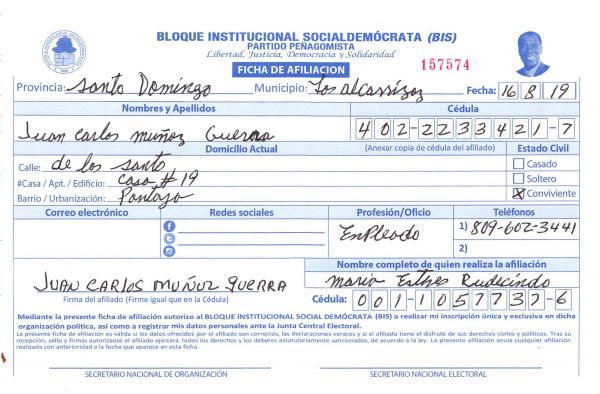 BLOQUE INSTITUCIONAL SOCIALDEMÓCRATA (BIS)
PARTIDO PEÑAGOMISTA
Libertad, Justicia, Democracia y Solidaridad
FICHA DE AFILIACION
157574
Provincia: Santo Domingo Municipio: Los alcarrizoz Fecha: 16 8 19
Nombres y Apellidos Cédula
Juan Carlos muñoz Guerra 402-2233421-7
Domicilio Actual (Anexar copia de cédula del afiliado) Estado Civil
Calle: de los santo Casado
#Casa / Apt. / Edificio: Casa # 19 Soltero
Barrio / Urbanización: Pantoja X Conviviente
Correo electrónico Redes sociales Profesión/Oficio Teléfonos
EnPleado 1) 809-602-3441
2)
Nombre completo de quien realiza la afiliación
JUAN CARLOS MUÑOZ GUERRA Maria Esther Rudecindo
Firma del afiliado (Firme igual que en la Cédula) Cédula: 001-1057737-6
Mediante la presente ficha de afiliación autorizo al BLOQUE INSTITUCIONAL SOCIAL DEMÓCRATA (BIS) a realizar mi inscripción única y exclusiva en dicha
organización política, así como a registrar mis datos personales ante la Junta Central Electoral.
La presente ficha de afiliación es válida si los datos ofrecidos por el afiliado son correctos, las declaraciones veraces y si el afiliado tiene el disfrute de sus derechos civiles y políticos. Tras su
recepción, sello y firmas autorizadas el afiliado ejercerá todos los derechos y los deberes estatutariamente sancionados, de acuerdo a la ley. La presente afiliación anula cualquier afiliación
realizada con anterioridad a la fecha que aparece en esta ficha.
SECRETARIO NACIONAL DE ORGANIZACIÓN SECRETARIO NACIONAL ELECTORAL